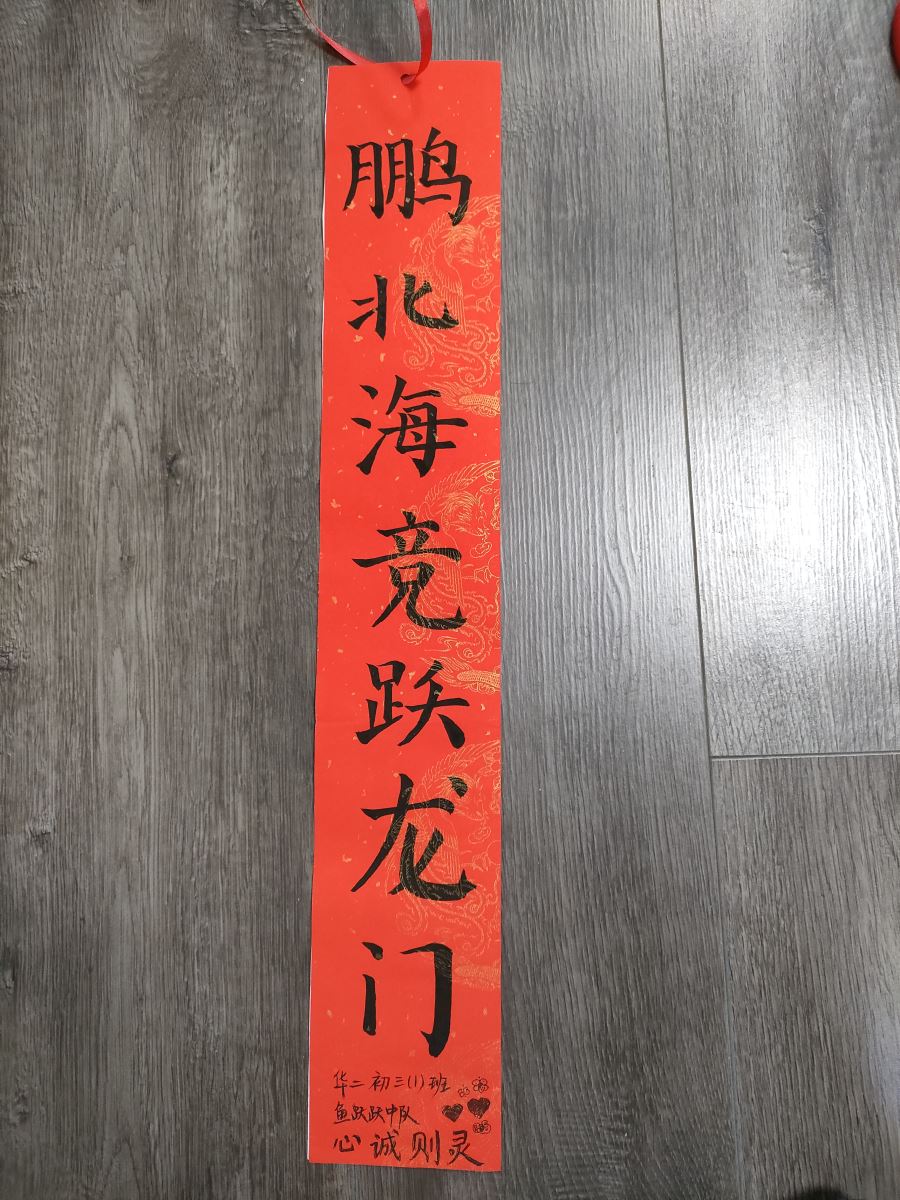 鹏北海竞跃龙门
华二初三(1)班
鱼跃跃中队
心诚则灵